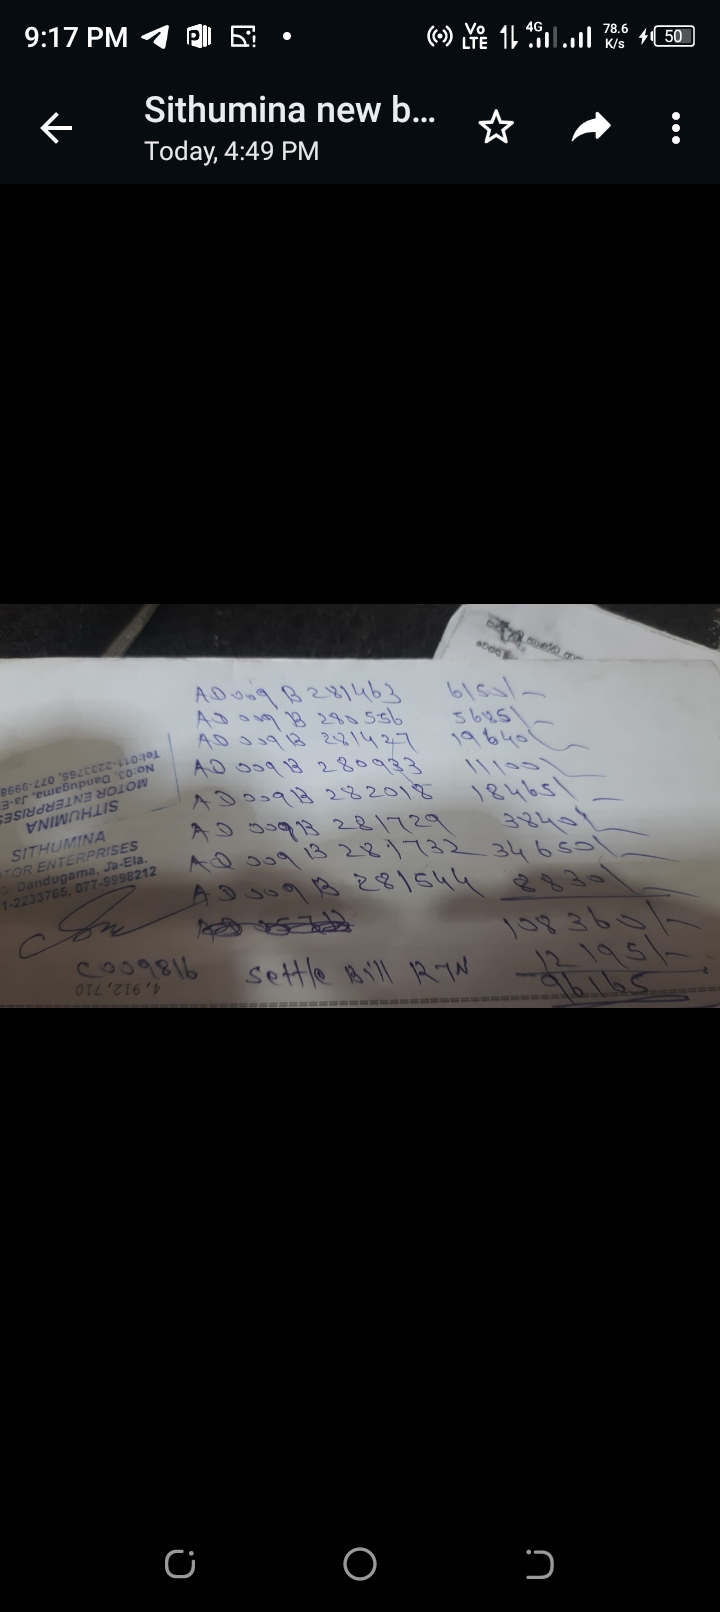 9:17 PM
Vo LTE 4G 78.6 K/s 50
Sithumina new b...
Today, 4:49 PM
AD 009 B 281463 6150/-
AD 009 B 280556 5685/-
AD 009 B 281427 19640/-
AD 009 B 280933 11100/-
AD 009 B 282018 18465/-
AD 009 B 281729 3840/-
AD 009 B 281732 34650/-
AD 009 B 281544 8830/-
108360/-
12195/-
C009816 Settle Bill RTN 96165
SITHUMINA
MOTOR ENTERPRISES
No:03, Dandugama, Ja-E
Tel:011-2233765, 077-9998
SITHUMINA
TOR ENTERPRISES
Dandugama, Ja-Ela.
1-2233765, 077-9998212
4,912,710